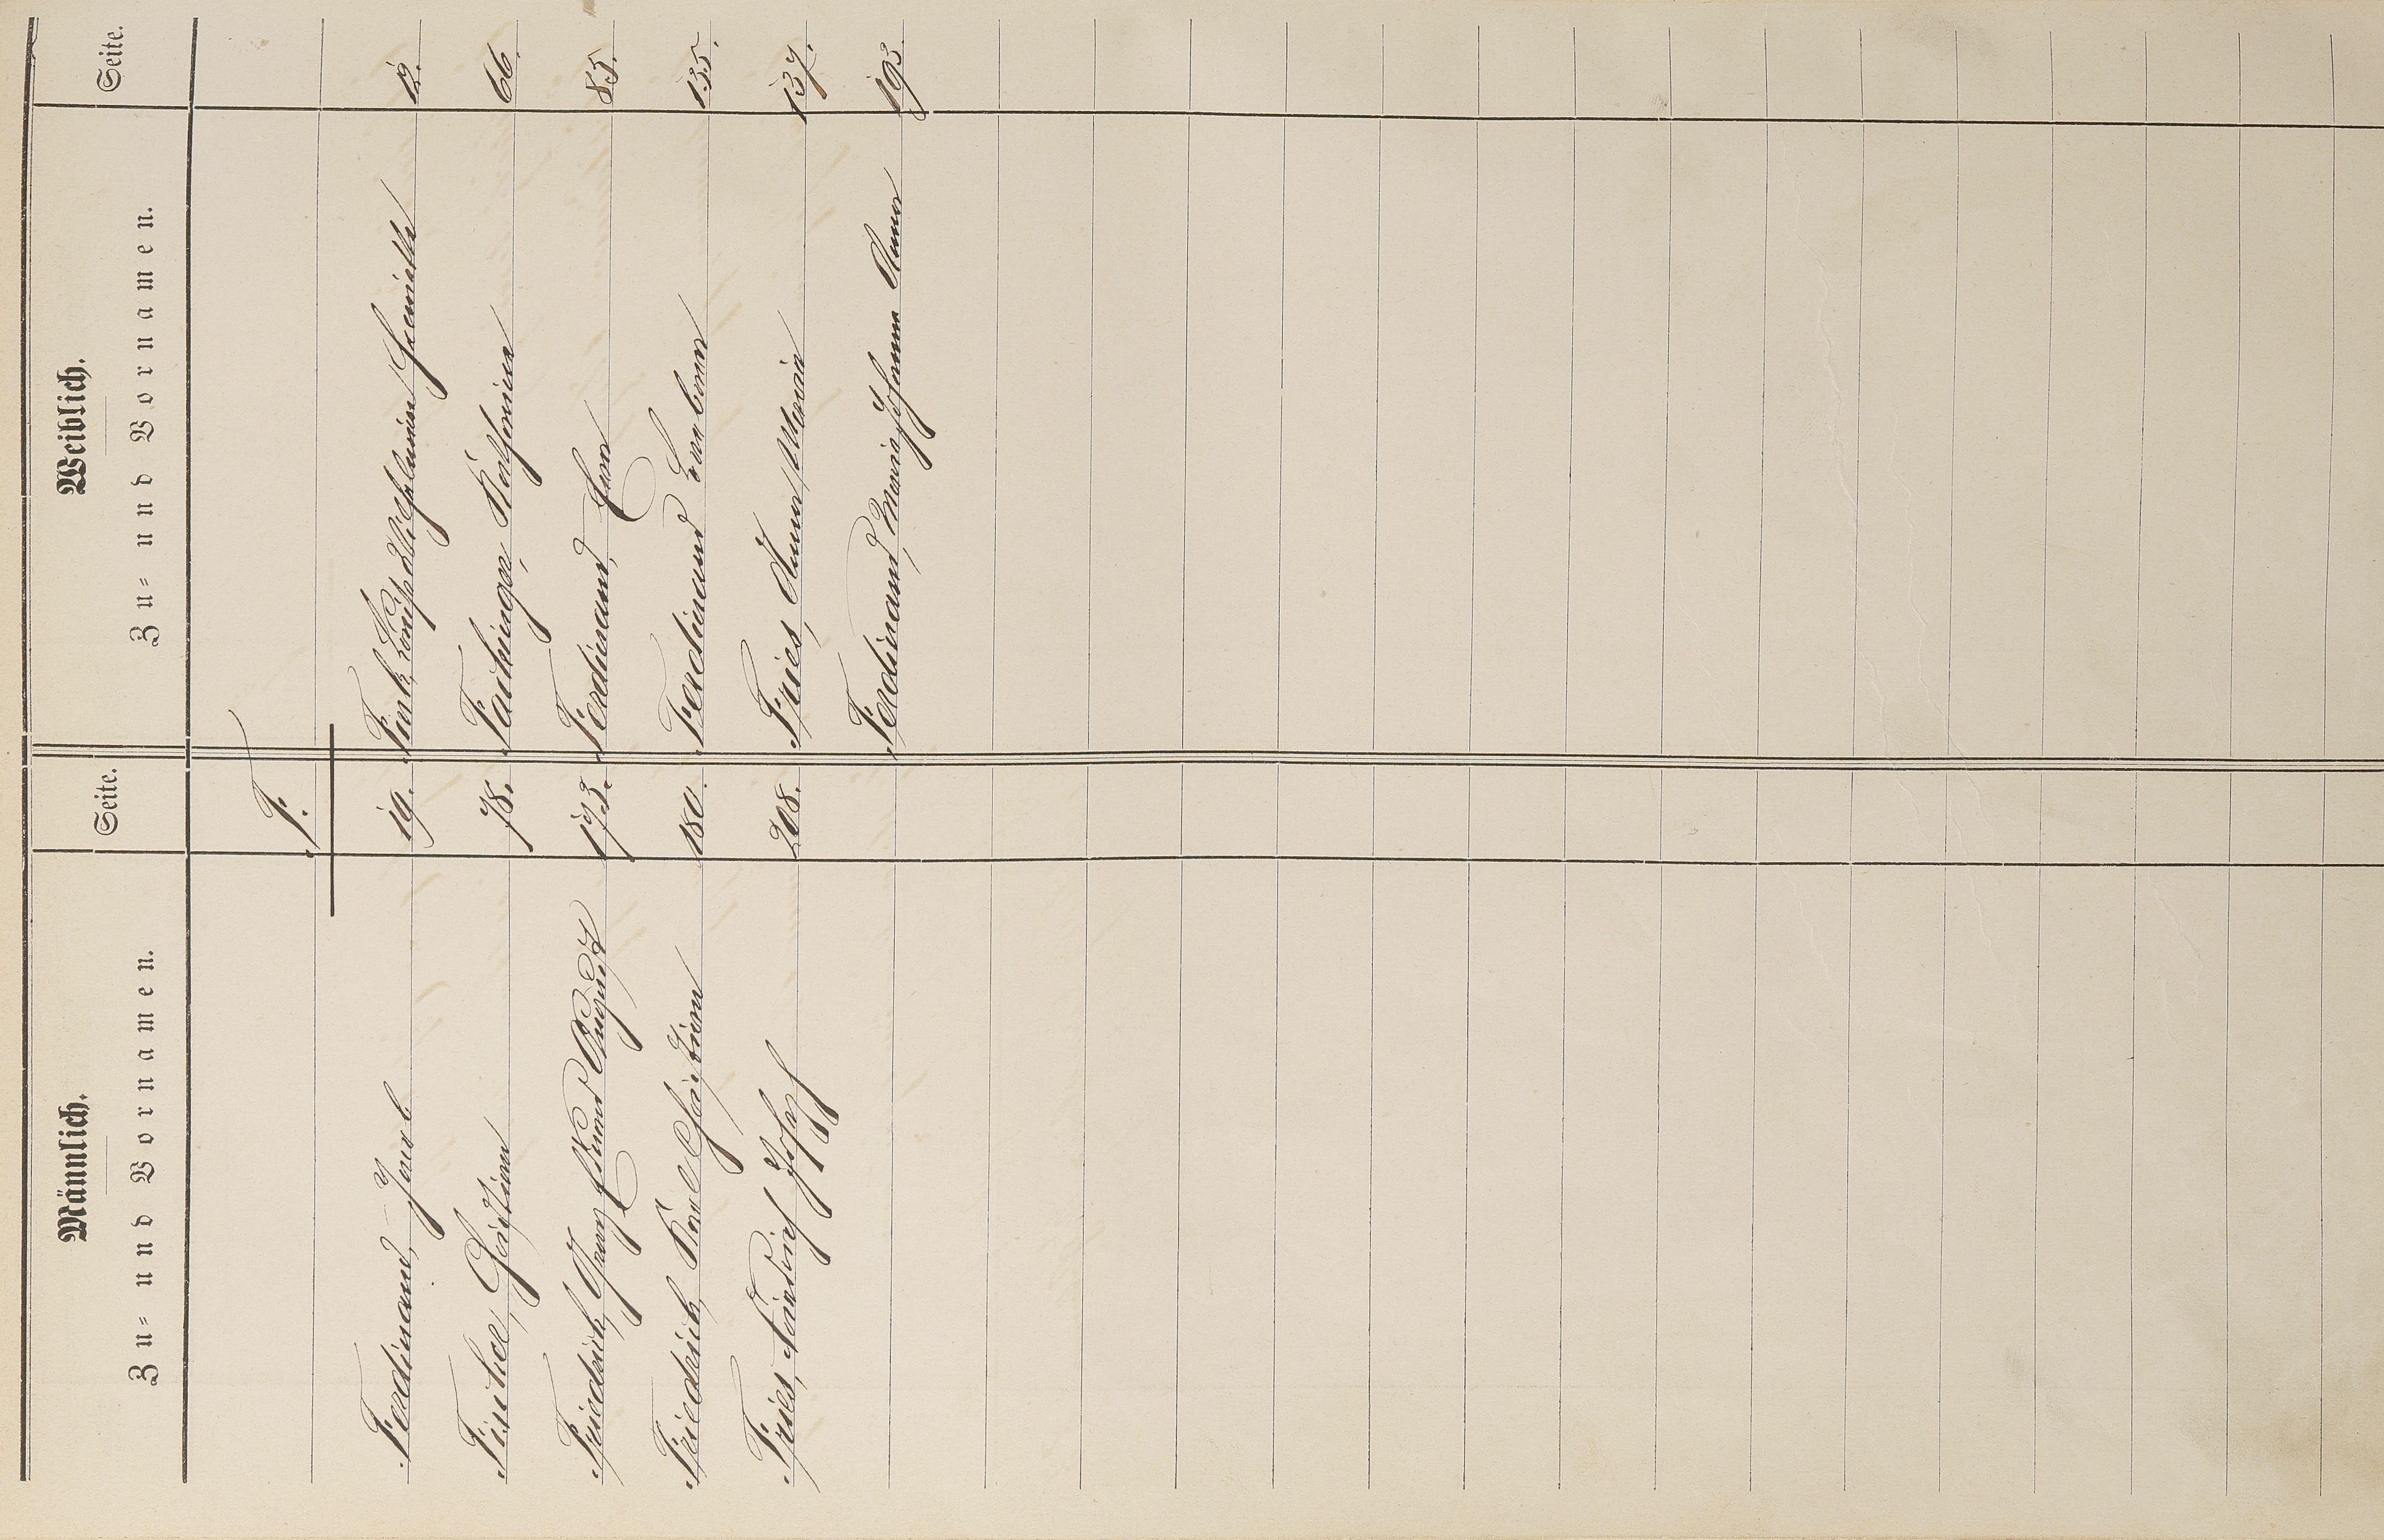 Männlich. Weiblich.
Zu- und Vornamen. Seite. Zu- und Vornamen. Seite.
F.
Ferdinand, Jacob 19. Fink, Louise Wilhelmine Henriette 12.
Fischer, Christian 78. Fachinger, Katharina 66.
Friedrich, Franz Edmund August 173. Ferdinand, Emma 85.
Friedrich, Karl Christian 180. Ferdinand 135.
Fries, Friedrich Joseph 208. Fries, Anna Maria 137.
Ferdinand, Maria Johanna Anna 193.